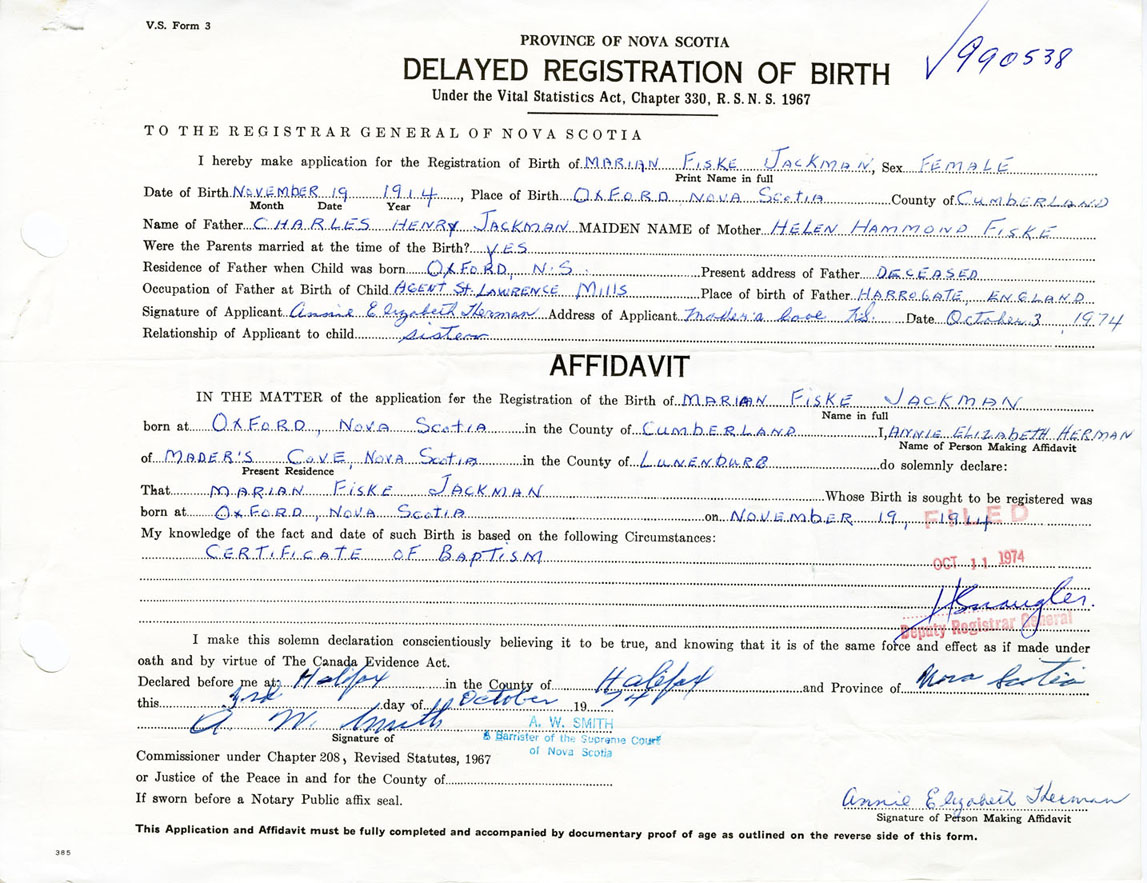 V.S. Form 3
PROVINCE OF NOVA SCOTIA
990538
DELAYED REGISTRATION OF BIRTH
Under the Vital Statistics Act, Chapter 330, R. S. N. S. 1967
TO THE REGISTRAR GENERAL OF NOVA SCOTIA
I hereby make application for the Registration of Birth of MARIAN FISKE JACKMAN, Sex FEMALE
Print Name in full
Date of Birth NOVEMBER 19 1914, Place of Birth OXFORD NOVA SCOTIA County of CUMBERLAND
Month Date Year
Name of Father CHARLES HENRY JACKMAN MAIDEN NAME of Mother HELEN HAMMOND FISKE
Were the Parents married at the time of the Birth? YES
Residence of Father when Child was born OXFORD, N.S. Present address of Father DECEASED
Occupation of Father at Birth of Child AGENT ST. LAWRENCE MILLS Place of birth of Father HARROGATE, ENGLAND
Signature of Applicant Annie Elizabeth Herman Address of Applicant Mader's Cove N.S. Date October 3 1974
Relationship of Applicant to child sister
AFFIDAVIT
IN THE MATTER of the application for the Registration of the Birth of MARIAN FISKE JACKMAN
Name in full
born at OXFORD, NOVA SCOTIA in the County of CUMBERLAND I, ANNIE ELIZABETH HERMAN
Name of Person Making Affidavit
of MADER'S COVE, NOVA SCOTIA in the County of LUNENDURB do solemnly declare:
Present Residence
That MARIAN FISKE JACKMAN Whose Birth is sought to be registered was
born at OXFORD, NOVA SCOTIA on NOVEMBER 19, 1914
FILED
My knowledge of the fact and date of such Birth is based on the following Circumstances:
CERTIFICATE OF BAPTISM
OCT 11 1974
Deputy Registrar General
I make this solemn declaration conscientiously believing it to be true, and knowing that it is of the same force and effect as if made under
oath and by virtue of The Canada Evidence Act.
Declared before me at Halifax in the County of Halifax and Province of Nova Scotia
this 3rd day of October 19 74
A W. Smith
Signature of
A. W. SMITH
A Barrister of the Supreme Court
of Nova Scotia
Commissioner under Chapter 208, Revised Statutes, 1967
or Justice of the Peace in and for the County of
If sworn before a Notary Public affix seal.
Annie Elizabeth Herman
Signature of Person Making Affidavit
This Application and Affidavit must be fully completed and accompanied by documentary proof of age as outlined on the reverse side of this form.
385